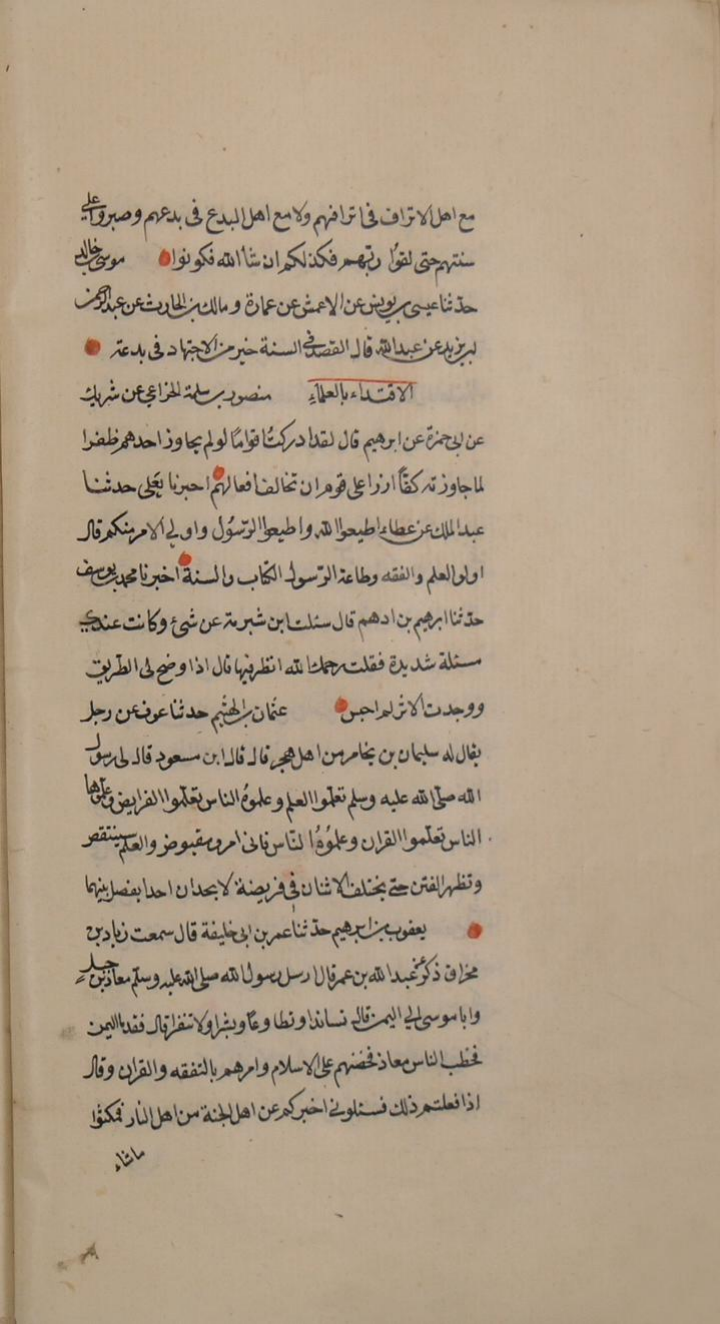 مع اهل الاتراف فى اترافهم ولا مع اهل البدع فى بدعهم وصبروا على
سنتهم حتى لقوا ربهم فكذلكم ان شاء الله فكونوا موسى بن خالد
حدثنا عيسى بن يونس عن الاعمش عن عمارة ومالك بن الحارث عن عبد الرحمن
بن يزيد عن عبد الله قال القصد فى السنة خير من الاجتهاد فى بدعة
الاقتداء بالعلماء منصور بن سلمة الخزاعي عن شريك
عن ابى حمزة عن ابرهيم قال لقد ادركت اقواما لو لم يجاوز احدهم ظفرا
لما جاوزته كفا ازرا على قوم ان تخالف افعالهم اخبرنا يعلى حدثنا
عبد الملك عن عطاء اطيعوا الله واطيعوا الرسول واولي الامر منكم قال
اولو العلم والفقه وطاعة الرسول الكتاب والسنة اخبرنا محمد بن يوسف
حدثنا ابرهيم بن ادهم قال سئلت ابن شبرمة عن شئ وكانت عندي
مسئلة شديدة فقلت رحمك الله انظر فيها قال اذا وضح لى الطريق
ووجدت الاثر لم احبس عثمان بن الهثيم حدثنا عوف عن رجل
يقال له سليمان بن جابر من اهل هجر قال قال ابن مسعود قال لى رسول
الله صلى الله عليه وسلم تعلموا العلم وعلموه الناس تعلموا الفرايض وعلموها
الناس تعلموا القران وعلموه الناس فانى امرؤ مقبوض والعلم سينتقص
وتظهر الفتن حتى يختلف الاثنان فى فريضة لا يجدان احدا يفصل بينهما
يعقوب بن ابرهيم حدثنا عمر بن ابى خليفة قال سمعت زياد بن
مخراق ذكر عن عبد الله بن عمر قال ارسل رسول الله صلى الله عليه وسلم معاذ بن جبل
وابا موسى الي اليمن قال تساندا وتطاوعا وبشرا ولا تنفرا قال فقدما اليمن
فخطب الناس معاذ فحضهم على الاسلام وامرهم بالتفقه والقران وقال
اذا فعلتم ذلك فسئلونى اخبركم عن اهل الجنة من اهل النار فمكثوا
ما شاء